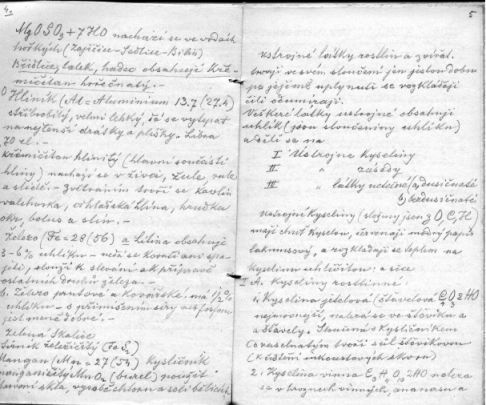 4.
MgOSO3 + 7HO nachází se ve vodách
hořkých (Zaječice-Sedlice-Bílin)
Břidlice, talek, hadec obsahují kře-
mičitan hořečnatý. —
Hliník (Al - Aluminium 13.7 (27.4)
stříbrobílý, velmi lehký, dá se vytepat
na nejtenší drátky a plíšky. Libra
70 zl. —
Křemičitan hlinitý (hlavní součást
hlíny) nachází se v živci, žule, rule
a slídě. Zvětráním tvoří se kaolin
valchovka, cihlářská hlína, hrudka
okr, bolus a slín. —
Železo (Fe = 28 (56) a Litina obsahuje
3-6% uhlíku - nedá se kovati ani spá-
jeti, slouží k slévání a k přípravě
ostatních druhů železa. —
b, Železo prutové a kovářské, má 1/2%
uhlíku - s přimíšením síry a fosforu
jest méně dobré. -
Zelená Skalice
Mangan (Mn = 27 (54) kysličník
manganičitý MnO2 (burel) použití
barvení skla, výrobě chloru a solí bělících
5
ústrojné látky rostlin a zvířat.
trvají ve svém sloučení jen jistou dobu
po jejímž uplynutí se rozkládají
čili odumírají.
Veškeré látky ústrojné obsahují
uhlík (jsou sloučeniny uhlíku)
a dělí se na
I Ústrojné kyseliny
II " zásady
III " látky netečné (a, dusičnaté
b, bezdusičnaté
Ústrojné kyseliny (složeny jsou z O, C, H)
mají chuť kyselou, červenají modrý papír
lakmusový, a rozkládají se teplem na
kyselinu uhličitou: a více
I A. Kyseliny rostlinné
1, Kyselina (šťavelová C2O3 HO
nejnovější, nalézá se ve šťovíku
a šťavely. Sloučená s kysličníkem
tvoří sůl šťovíkovou
(k čistění inkoustových skvrn)
2, Kyselina vinná 2HO nalézá
se v hroznech vinných, ananasu a